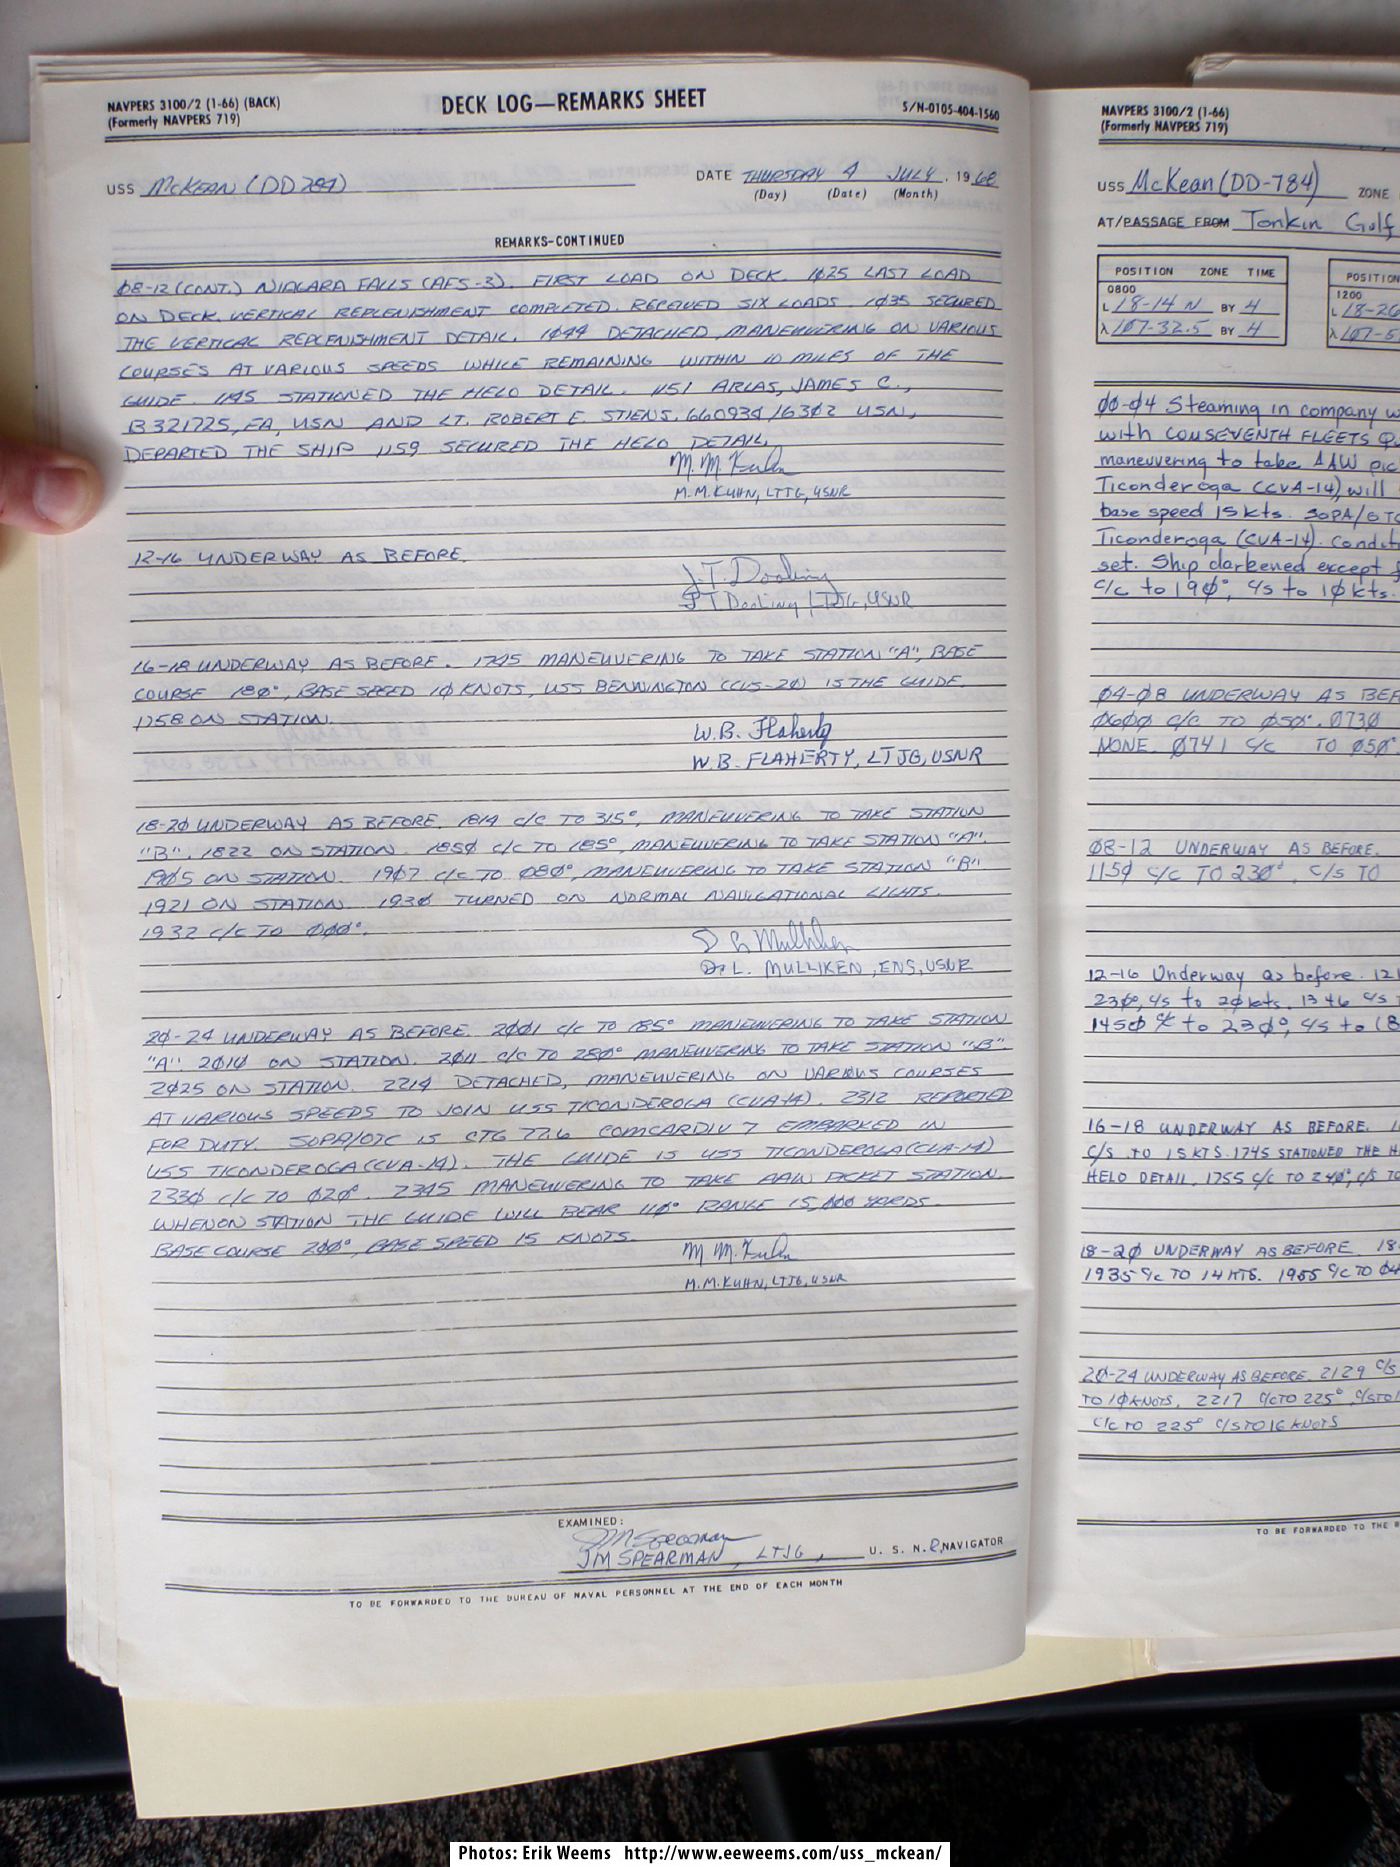 NAVPERS 3100/2 (1-66) (BACK)
(Formerly NAVPERS 719)
DECK LOG—REMARKS SHEET
S/N-0105-404-1560
USS McKEAN (DD 784)
DATE THURSDAY 4 JULY, 1968
(Day) (Date) (Month)
REMARKS-CONTINUED
08-12 (CONT.) NIAGARA FALLS (AFS-3). FIRST LOAD ON DECK. 1025 LAST LOAD
ON DECK. VERTICAL REPLENISHMENT COMPLETED. RECEIVED SIX LOADS. 1035 SECURED
THE VERTICAL REPLENISHMENT DETAIL. 1044 DETACHED, MANEUVERING ON VARIOUS
COURSES AT VARIOUS SPEEDS WHILE REMAINING WITHIN 10 MILES OF THE
GUIDE. 1145 STATIONED THE HELO DETAIL. 1151 ARIAS, JAMES C.,
B321725, FA, USN AND LT. ROBERT E. STIENS, 660934/6302 USN,
DEPARTED THE SHIP 1159 SECURED THE HELO DETAIL.
M. M. Kuhn
M.M. KUHN, LTJG, USNR
12-16 UNDERWAY AS BEFORE.
J.T. Dooling
J T Dooling LTJG, USNR
16-18 UNDERWAY AS BEFORE. 1745 MANEUVERING TO TAKE STATION "A", BASE
COURSE 180°, BASE SPEED 10 KNOTS, USS BENNINGTON (CVS-20) IS THE GUIDE.
1758 ON STATION.
W.B. Flaherty
W.B. FLAHERTY, LTJG, USNR
18-20 UNDERWAY AS BEFORE. 1814 C/C TO 315°, MANEUVERING TO TAKE STATION
"B". 1822 ON STATION. 1850 C/C TO 185°, MANEUVERING TO TAKE STATION "A".
1905 ON STATION. 1907 C/C TO 080°, MANEUVERING TO TAKE STATION "B"
1921 ON STATION. 1930 TURNED ON NORMAL NAVIGATIONAL LIGHTS.
1932 C/C TO 000°.
D L Mulliken
D. L. MULLIKEN, ENS, USNR
20-24 UNDERWAY AS BEFORE. 2001 C/C TO 185° MANEUVERING TO TAKE STATION
"A". 2010 ON STATION. 2011 C/C TO 280° MANEUVERING TO TAKE STATION "B".
2025 ON STATION. 2214 DETACHED, MANEUVERING ON VARIOUS COURSES
AT VARIOUS SPEEDS TO JOIN USS TICONDEROGA (CVA-14). 2312 REPORTED
FOR DUTY. SOPA/OTC IS CTG 77.6 COMCARDIV 7 EMBARKED IN
USS TICONDEROGA (CVA-14). THE GUIDE IS USS TICONDEROGA (CVA-14)
2330 C/C TO 020°. 2345 MANEUVERING TO TAKE AAW PICKET STATION.
WHEN ON STATION THE GUIDE WILL BEAR 110° RANGE 15,000 YARDS.
BASE COURSE 200°, BASE SPEED 15 KNOTS.
M M. Kuhn
M.M. KUHN, LTJG, USNR
EXAMINED:
JM Spearman
JM SPEARMAN, LTJG, U. S. N. R, NAVIGATOR
TO BE FORWARDED TO THE BUREAU OF NAVAL PERSONNEL AT THE END OF EACH MONTH
NAVPERS 3100/2 (1-66)
(Formerly NAVPERS 719)
USS McKean (DD-784) ZONE
AT/PASSAGE FROM Tonkin Gulf
POSITION ZONE TIME
0800
L 18-14 N BY 4
λ 107-32.5 BY 4
POSITION
1200
L 18-26
λ 107-5
00-04 Steaming in company w
with COMSEVENTH FLEETS
maneuvering to take AAW pic
Ticonderoga (CVA-14) will
base speed 15 kts. SOPA/OTC
Ticonderoga (CVA-14). Condit
set. Ship darkened except f
c/c to 190°, c/s to 10 kts.
04-08 UNDERWAY AS BEF
0600 C/C TO 050°. 0730
NONE. 0741 C/C TO 050°
08-12 UNDERWAY AS BEFORE.
1150 C/C TO 230°. C/S TO
12-16 Underway as before. 121
230°, c/s to 20 kts. 1346 c/s t
1450 c/c to 230°, c/s to 18
16-18 UNDERWAY AS BEFORE. 1
C/S TO 15 KTS. 1745 STATIONED THE H
HELO DETAIL. 1755 C/C TO 240°, C/S TO
18-20 UNDERWAY AS BEFORE. 18
1935 C/C TO 14 KTS. 1955 C/C TO 04
20-24 UNDERWAY AS BEFORE. 2129 C/S
TO 10 KNOTS. 2217 C/C TO 225°, C/S TO 1
C/C TO 225° C/S TO 16 KNOTS
TO BE FORWARDED TO THE B
Photos: Erik Weems http://www.eeweems.com/uss_mckean/